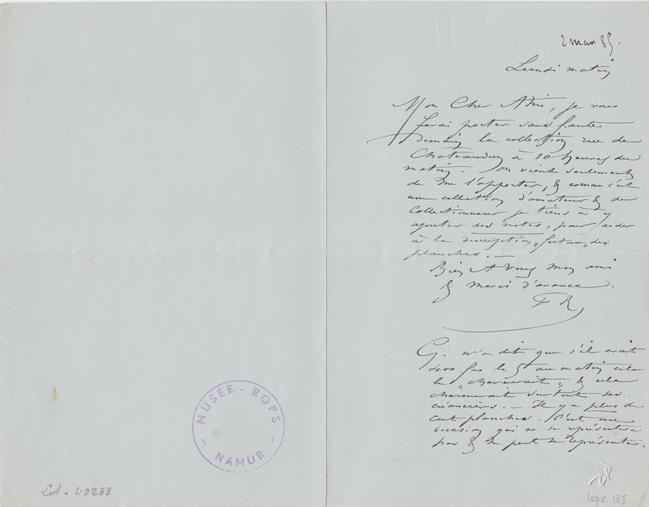 2 mars 85.
Lundi matin
Mon Cher Ami, je vous
ferai porter sans faute
demain la collection rue de
Chateaudun à 10 heures du
matin. On vient seulement
de me l'apporter, & comme c'est
une collection d'amateur & de
collectionneur je tiens à y
ajouter des notes, pour aider
à la description future des
planches. —
Bien à vous mon ami
& merci d'avance.
F R
G. m'a dit que s'il avait
400 frs le 5 au matin cela
le "charmerait" & cela
charmerait surtout ses
créanciers. — Il y a plus de
cent planches. C'est une
occasion qui ne se représentera
pas & ne peut se représenter.
MUSÉE - ROPS
NAMUR
Let - 40233